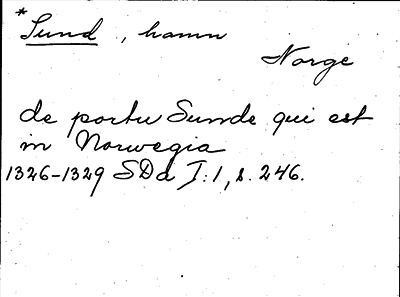 *Sund, hamn
Norge
de portu Sunde qui est
in Norwegia
1326-1329 SDa I:1, s. 246.